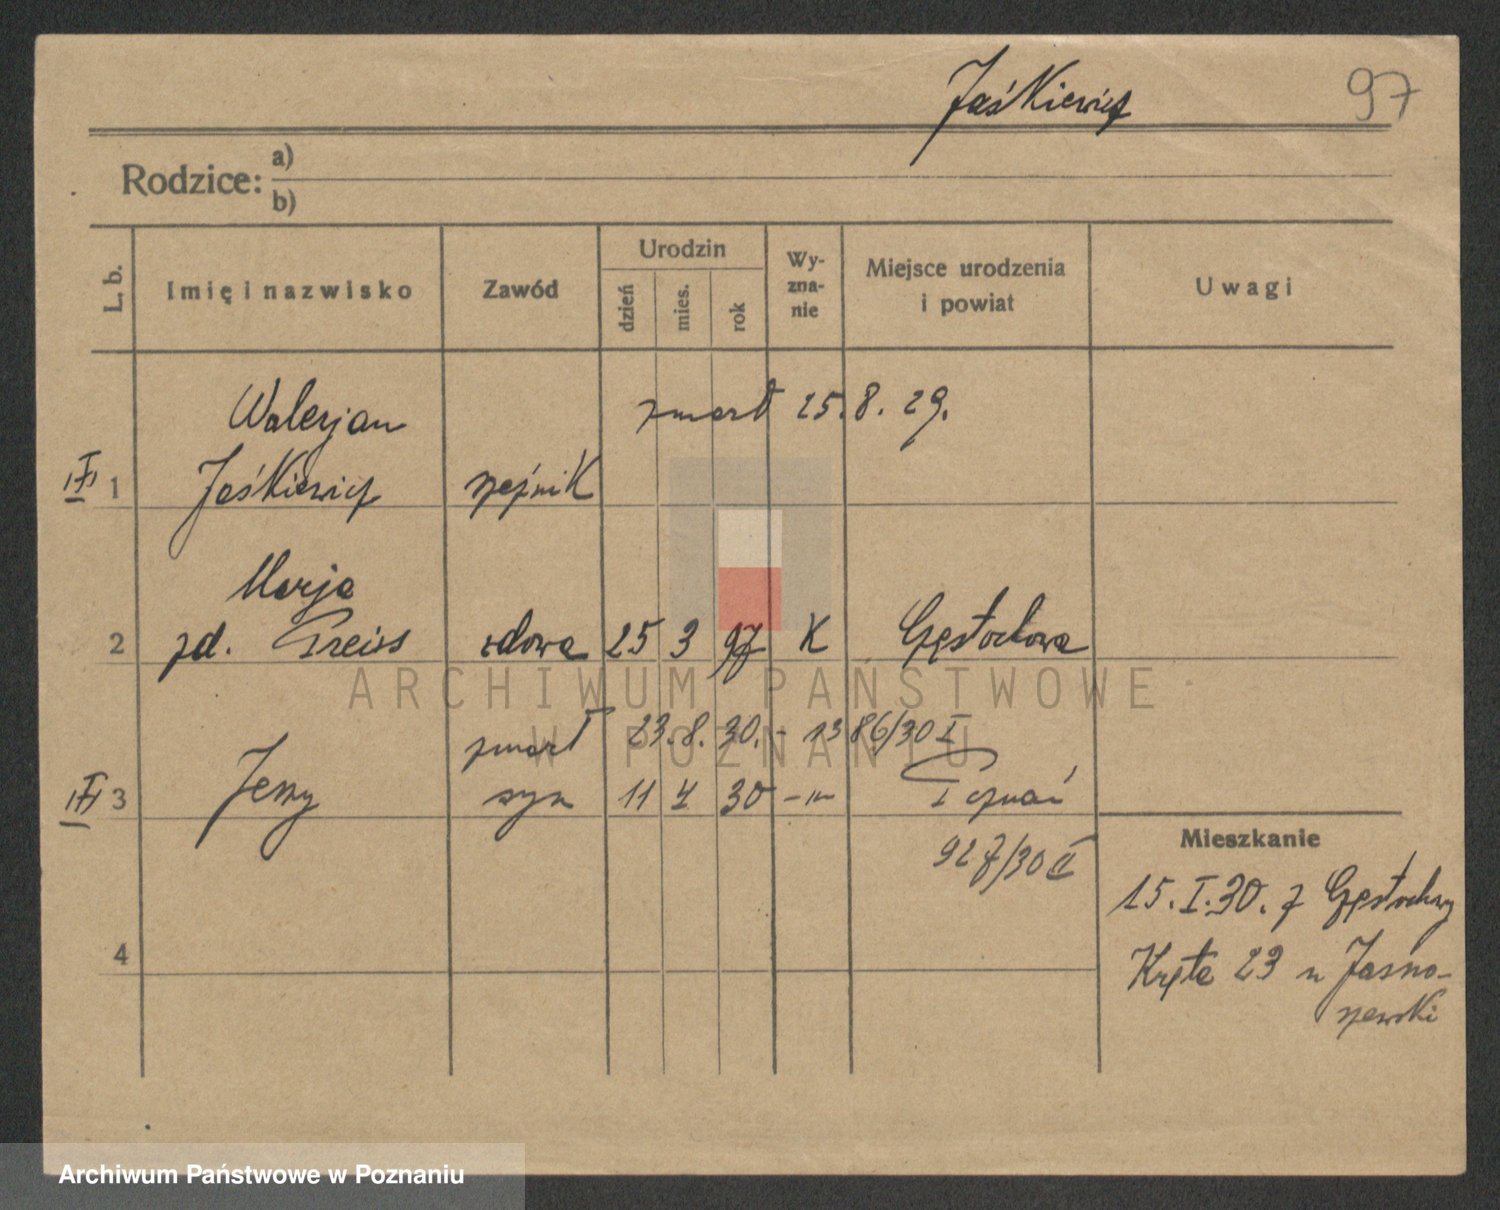 Jaśkiewicz
97
Rodzice: a)
b)
L. b.
Imię i nazwisko
Zawód
Urodzin
dzień
mies.
rok
Wy-
zna-
nie
Miejsce urodzenia
i powiat
Uwagi
Walerjan
zmarł 25.8.29.
1 Jaśkiewicz
Marja
2 zd. Preiss wdowa 25 3 97 K Częstochowa
zmarł 23.8.30. - 1386/30 I
3 Jerzy syn 11 4 30 -"- Poznań
927/30 II
Mieszkanie
15.I.30. z Częstochowy
4
Kręta 23 u Jasno-
szewski
ARCHIWUM PAŃSTWOWE
W POZNANIU
Archiwum Państwowe w Poznaniu